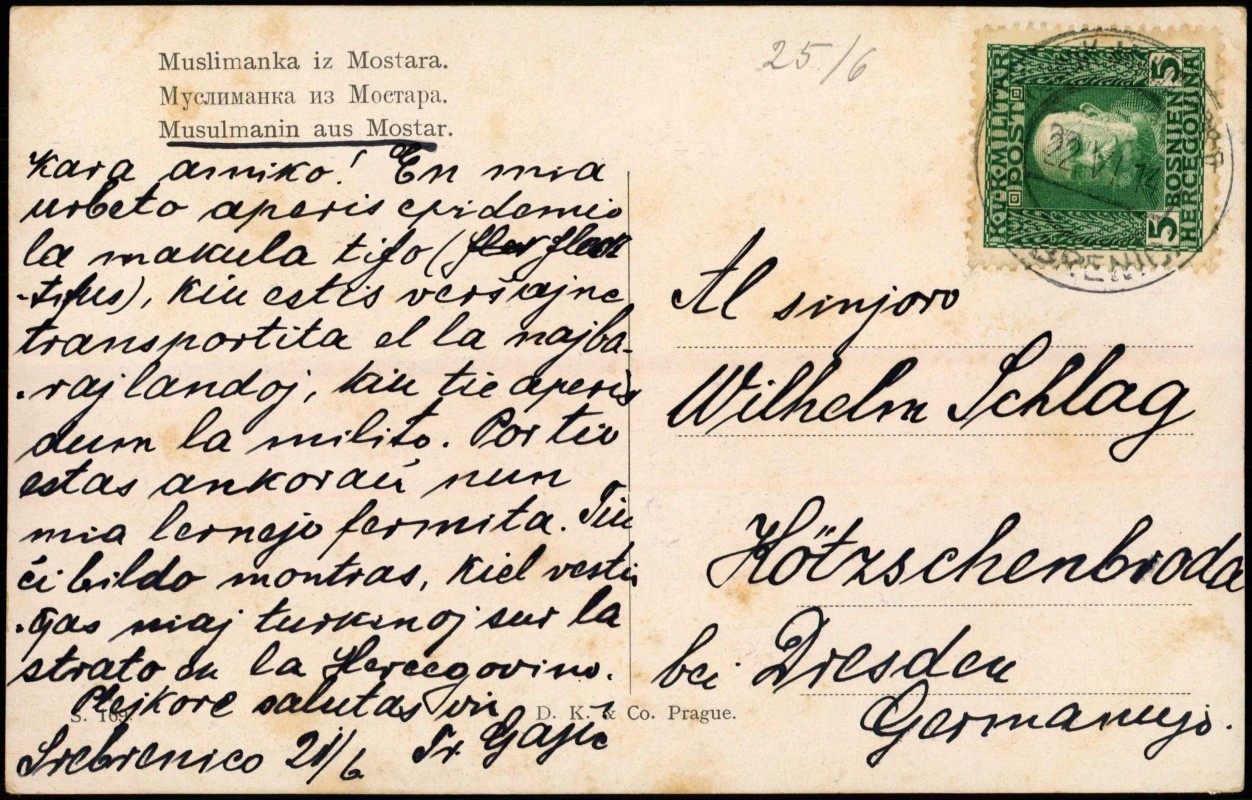 Muslimanka iz Mostara.
Муслиманка из Мостара.
Musulmanin aus Mostar.
25/6
K.U.K. MILITÄR
POST
BOSNIEN
HERCEGOVINA
5
5
Kara amiko! En mia
urbeto aperis epidemio
la makula tifo (fleck
-tifus), kiu estis verŝajne
transportita el la najba-
-raj landoj, kiu tie aperis
dum la milito. Por tio
estas ankoraŭ nun
mia lernejo fermita. Tiu
ĉi bildo montras, kiel vesti-
-ĝas niaj turkinoj sur la
strato en la Hercegovino.
Plejkore salutas vin
Srebrenico 21/6 Tr Gajić
Al sinjoro
Wilhelm Schlag
Kötzschenbroda
bei Dresden
Germanujo.
S. 169.
D. K. & Co. Prague.